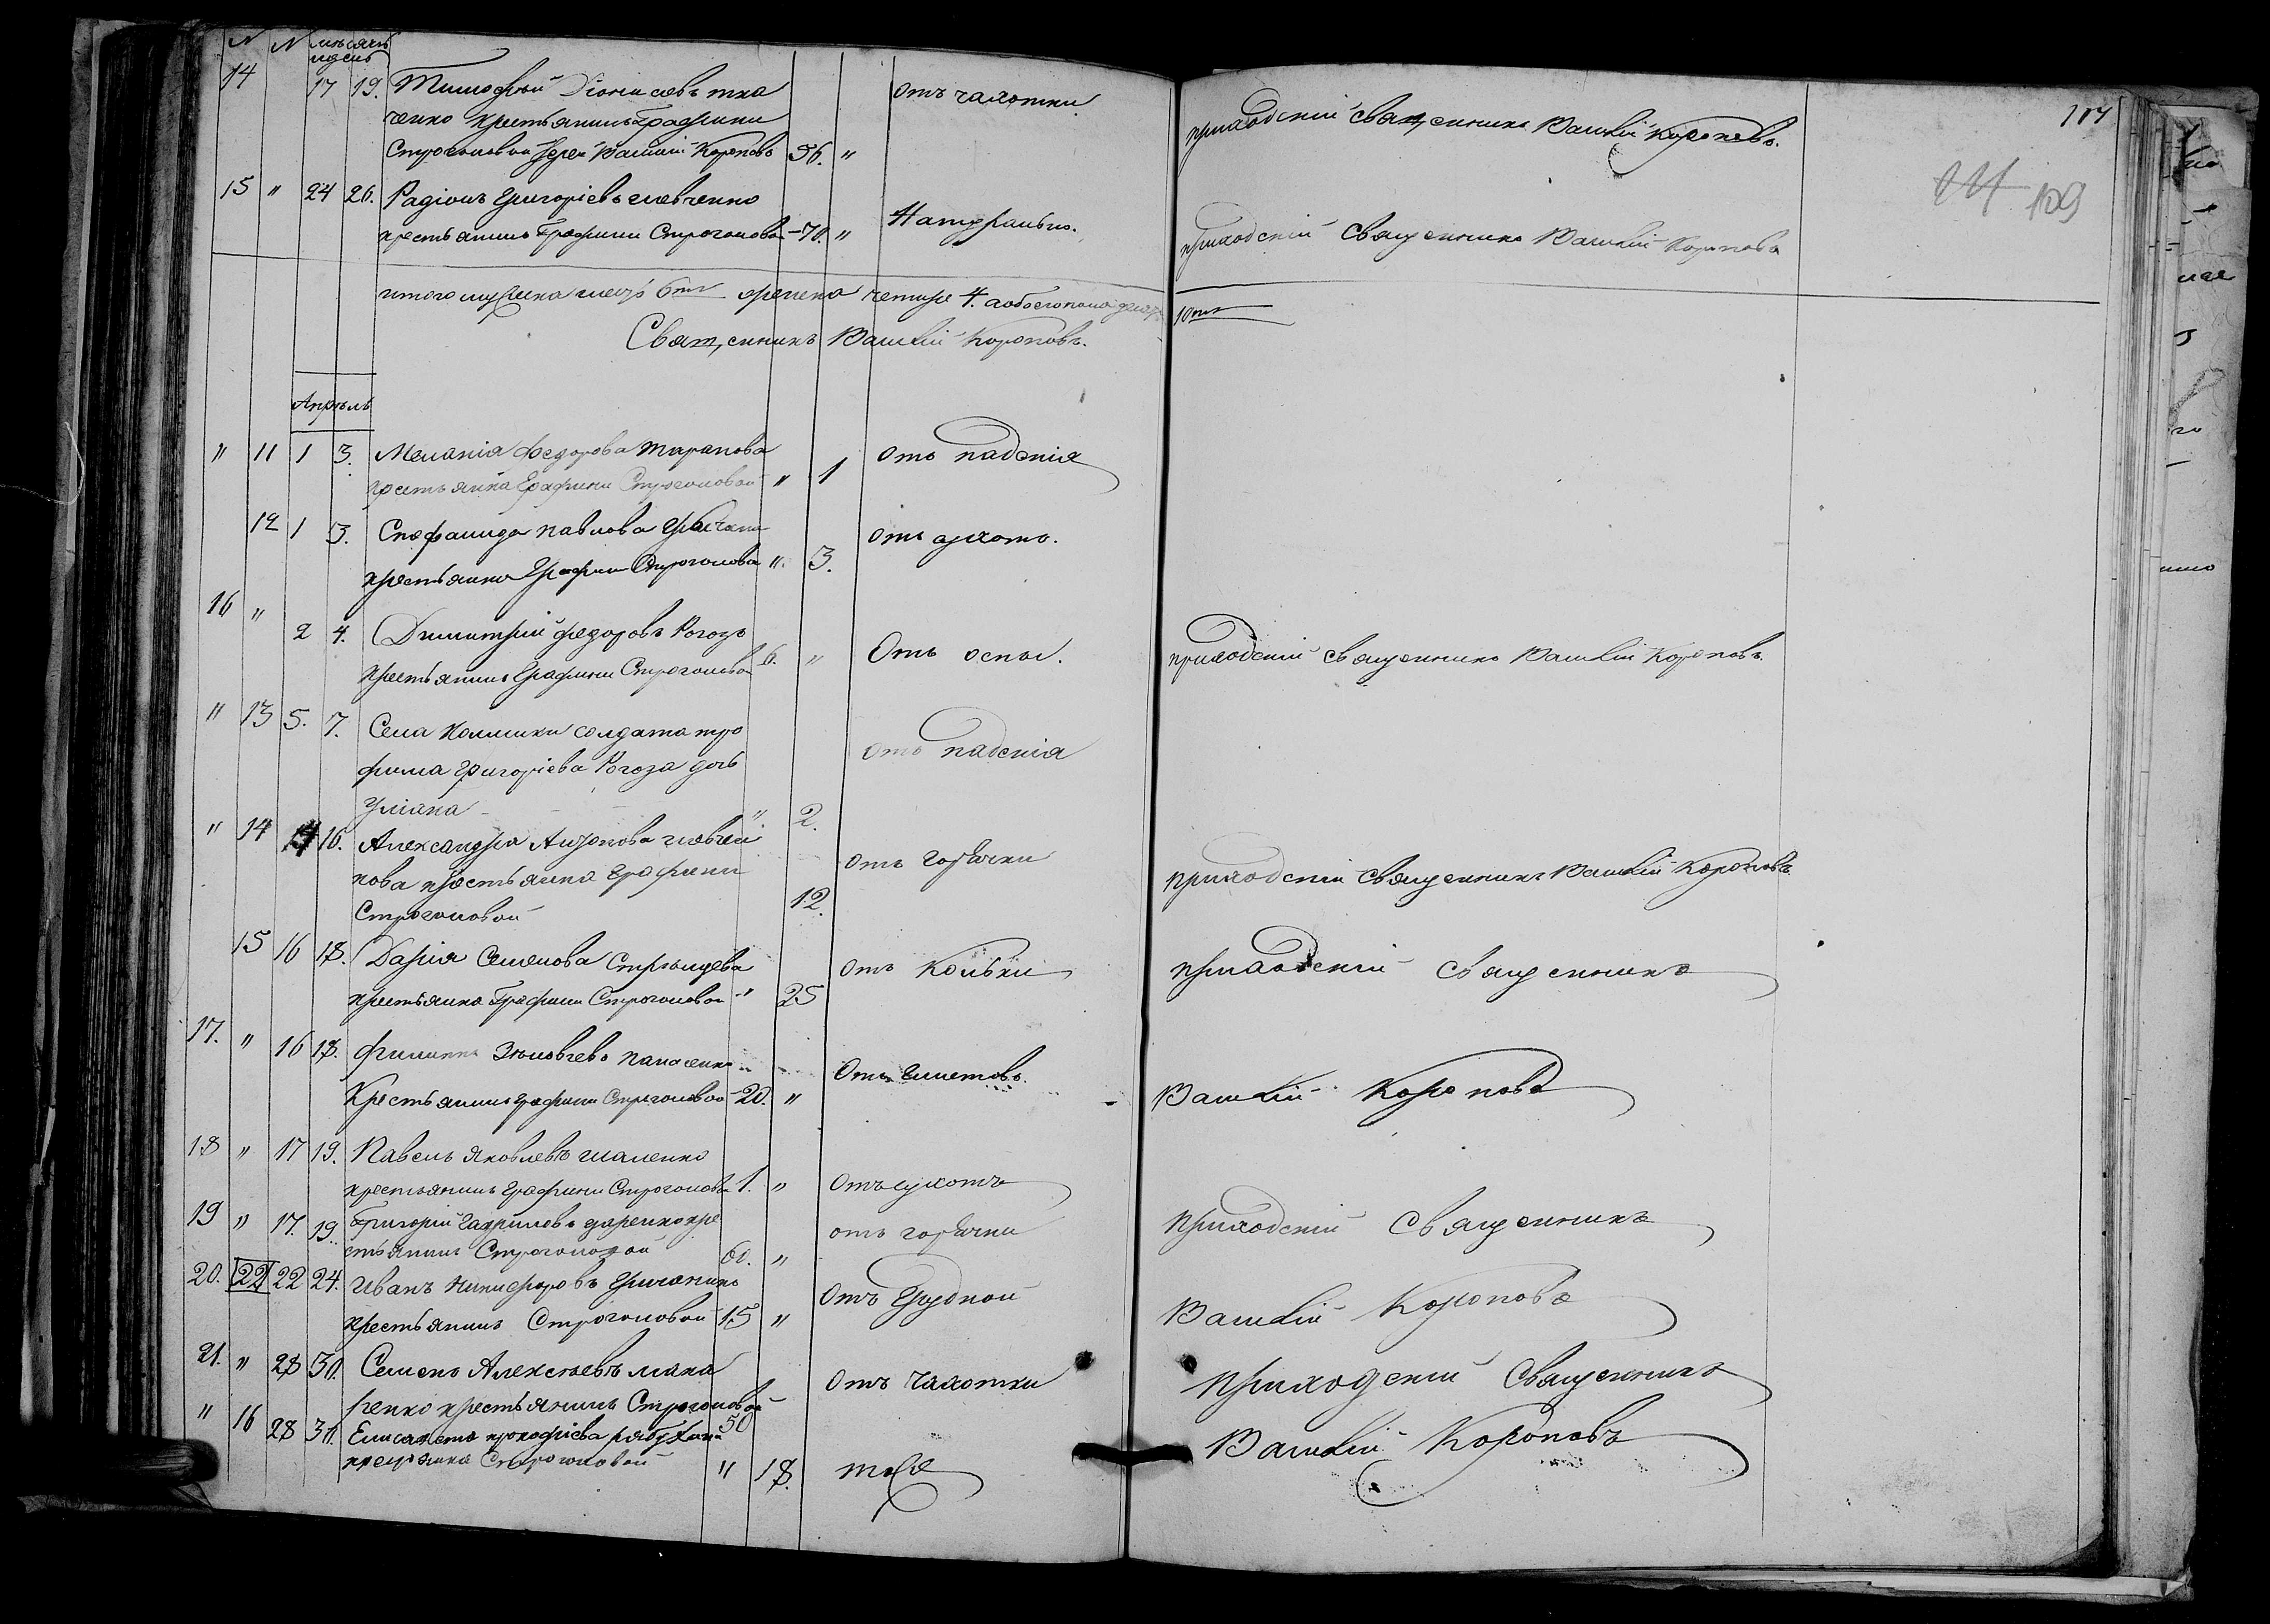 N N мѣсяцъ
и день
14 17 19. Тимофѣй Діонисіевъ тка
ченко крестьянинъ Графини
Строгоновой Іерей Василій Короповъ 56. "
отъ чахотки
приходскій Священникъ Василій Короповъ.
107
109
15 " 24 26. Радіонъ Григоріевъ шевченко
крестьянинъ Графини Строгоновой 70. "
Натурально.
приходскій Священникъ Василій Короповъ
итого мужеска шесть 6ть женска четыре 4. а обоего пола
10ть
Священникъ Василій Короповъ.
Апрѣль
" 11 1 3. Меланія Федорова Таранова
крестьянка Графини Строгоновой " 1
отъ паденія
12 1 3. Павлова
крестьянка Графини Строгоновой " 3.
отъ сухотъ.
16 "
2 4. Димитрій Федоровъ Рогозъ
крестьянинъ Графини Строгоновой 6. "
Отъ оспы.
приходскій Священникъ Василій Короповъ.
" 13 5. 7. Села солдата тро
фима Григоріева Рогоза дочь
Уліана " 2.
отъ паденія
" 14 14 16. Александра Антонова шевчен
кова крестьянка Графини
Строгоновой 12.
отъ горячки
приходскій Священникъ Василій Короповъ
15 16 18. Дарія Семенова Стрѣльцева
крестьянка Графини Строгоновой " 25
отъ Кольки
приходскій Священникъ
17. " 16 18. Филиппъ Панасенко
Крестьянинъ Графини Строгоновой 20. "
Отъ
Василій Короповъ
18 " 17 19. Павелъ Яковлевъ
крестьянинъ Графини Строгоновой 1. "
Отъ сухотъ
19 " 17. 19. Григорій Гавриловъ кре
стьянинъ Строгоновой 60. "
отъ горячки
приходскій Священникъ
20. 22 22 24. Иванъ Никифоровъ
крестьянинъ Строгоновой 15 "
Отъ Грудной
Василій Короповъ
21. " 28 30. Семенъ Алексѣевъ мака
ренко крестьянинъ Строгоновой 50
Отъ чахотки
приходскій Священникъ
" 16 28 30. прокофіева
Строгоновой " 18.
тоже
Василій Короповъ